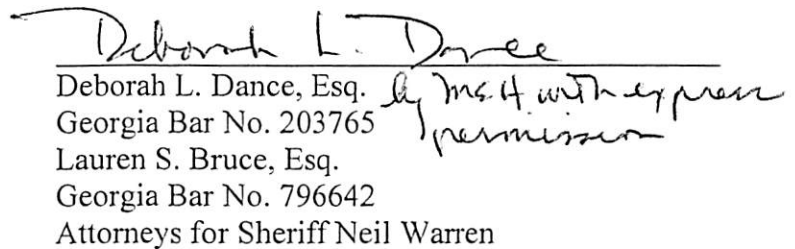 Deborah L. Dance
Deborah L. Dance, Esq. by MSH with express
Georgia Bar No. 203765 permission
Lauren S. Bruce, Esq.
Georgia Bar No. 796642
Attorneys for Sheriff Neil Warren